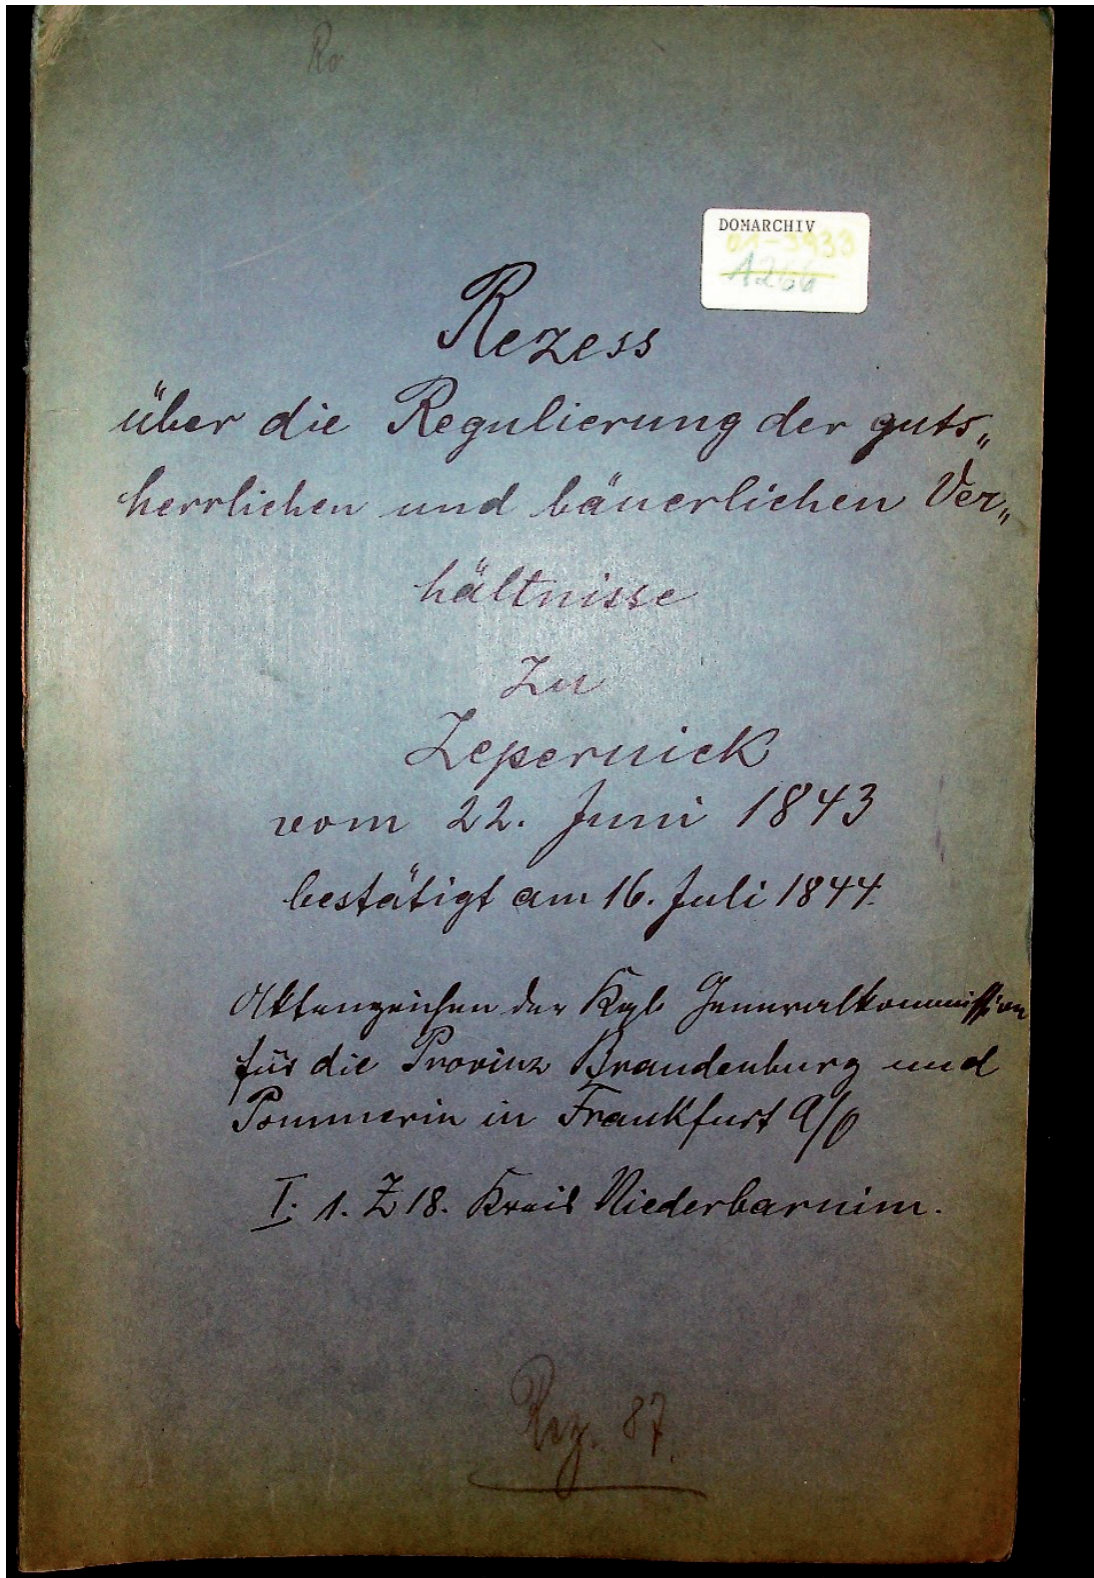 Ro
DOMARCHIV
01-3933
1266
Rezess
über die Regulierung der guts„
herrlichen und bäuerlichen Ver„
hältnisse
Zu
Zepernick
vom 22. Juni 1843
bestätigt am 16. Juli 1844.
Aktenzeichen der Kgl. Generalkommission
für die Provinz Brandenburg und
Pommern in Frankfurt a/O
I. 1. Z 18. Kreis Niederbarnim.
Rez. 87.